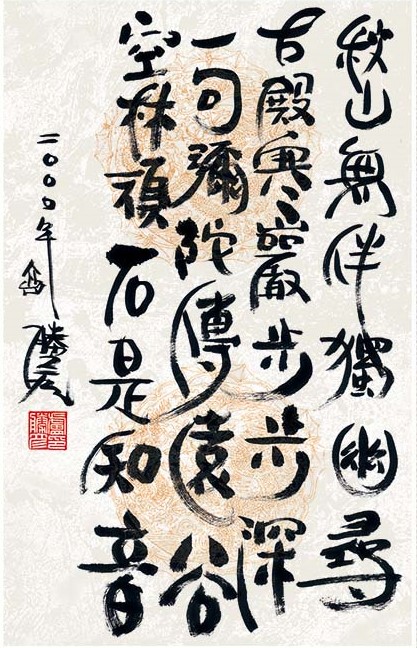 秋山無伴獨尋
古殿寒巖步步深
一句彌陀傳遠谷
空林頑石是知音
二〇〇〇年 盧勝彥